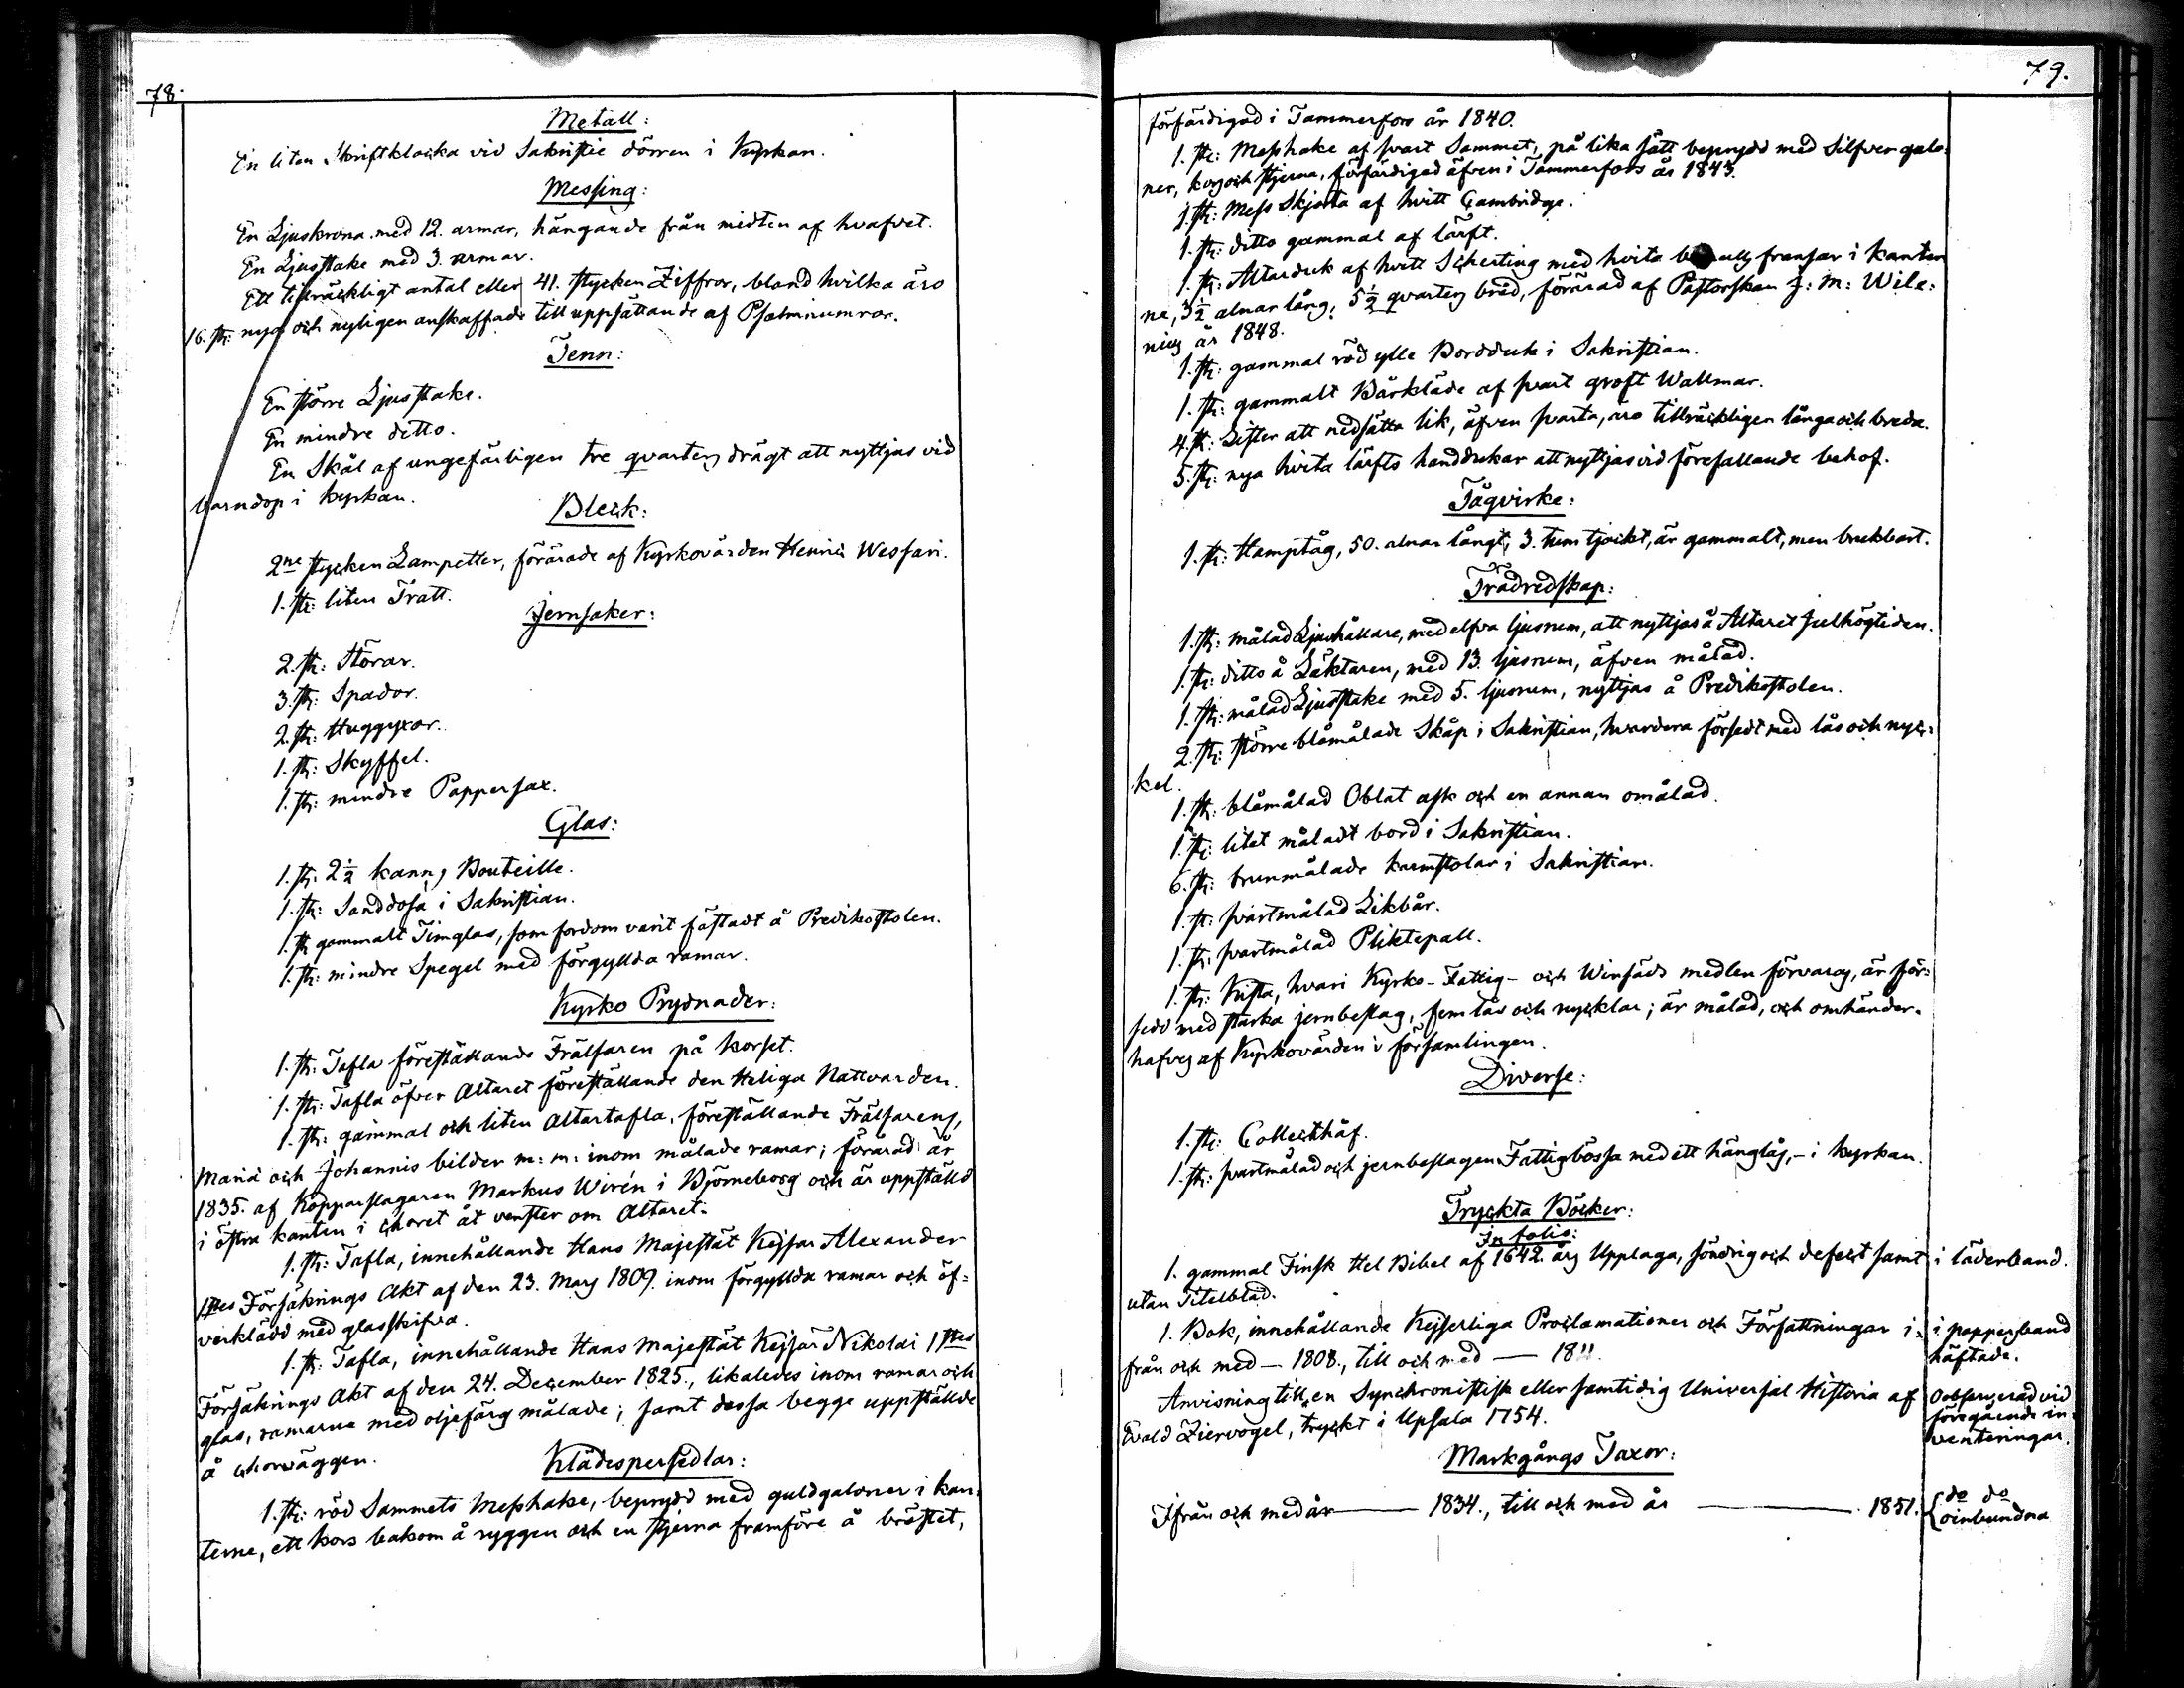 78.
Metall:
En liten Skriftklocka vid Sakristie dörren i Kyrkan.
Messing:
En Ljuskrona med 12. armar, hängande från midten af hvafvet.
En Ljusstake med 3. armar.
Ett tillräckligt antal eller 41. stycken Ziffror, bland hvilka äro
16. st: nya och nyligen anskaffade till uppsättande af Psalmnumror.
Tenn:
En större Ljusstake.
En mindre ditto.
En Skål af ungefärligen tre qvarters drägt att nyttjas vid
barndop i kyrkan.
Bleck:
2ne stycken Lampetter, förärade af Kyrkovärden Henric Wessari.
1. st: liten Tratt.
Jernsaker:
2. st: Störar.
3. st: Spador.
2. st: Huggyxor.
1. st: Skyffel.
1. st: mindre Papperssax.
Glas:
1. st: 2½ kanns Bouteille.
1. st: Sanddosa i Sakristian.
1. st gammalt Timglas, som fordom varit fästadt å Predikostolen.
1. st: mindre Spegel med förgyllda ramar.
Kyrko Prydnader:
1. st: Tafla föreställande Frälsaren på korset.
1. st: Tafla öfver Altaret föreställande den Heliga Nattvarden.
1. st: gammal och liten Altartafla, föreställande Frälsarens,
Mariæ och Johannis bilder m: m: inom målade ramar; förärad år
1835. af Kopparslagaren Markus Wirén i Björneborg och är uppställd
i östra kanten i choret åt venster om Altaret.
1. st: Tafla, innehållande Hans Majestät Kejsar Alexander
1stes Försäkrings Akt af den 23. Mars 1809. inom förgyllda ramar och öf=
verklädd med glasskifva.
1. st: Tafla, innehållande Hans Majestät Kejsar Nikolai 1stes
Försäkrings Akt af den 24. December 1825., likaledes inom ramar och
glas, ramarna med oljefärg målade; samt dessa begge uppställde
å chorväggen.
Klädespersedlar:
1. st: röd Sammets Messhake, beprydd med guldgaloner i kan=
terne, ett kors bakom å ryggen och en stjerna framföre å bröstet,
79.
förfärdigad i Tammerfors år 1840.
1. st: Messhake af svart Sammet, på lika sätt beprydd med Silfver galo=
ner, kors och stjerna, förfärdigad äfven i Tammerfors år 1843.
1. st: Mess Skjorta af hvitt Cambridge.
1. st: ditto gammal af lärft.
1. st: Altarduk af hvitt Scherting med hvita fransar i kanter
ne, 3½ alnar lång, 5½ qvarters bred, förärad af Pastorskan J: M: Wile:
nius år 1848.
1. st: gammal röd ylle Bordduk i Sakristian.
1. st: gammalt Bårkläde af svart groft Wallmar.
4. st: Lister att nedsätta lik, äfven svarta, äro tillräckligen långa och breda.
5. st: nya hvita lärfts handdukar att nyttjas vid förefallande behof.
Tågvirke:
1. st: Hamptåg, 50. alnar långt, 3. tum tjockt, är gammalt, men brukbart.
Trädredskap:
1. st: målad Ljushållare, med elfva ljusrum, att nyttjas å Altaret Julhögtiden.
1. st: ditto å Läktaren, med 13. ljusrum, äfven målad.
1. st: målad Ljusstake med 5. ljusrum, nyttjas å Predikostolen.
2. st: större blåmålade Skåp i Sakristian, hvardera försedt med lås och nyc=
kel.
1. st: blåmålad Oblat ask och en annan omålad.
1. st: litet måladt bord i Sakristian.
6. st: brunmålade karmstolar i Sakristian.
1. st: svartmålad Likbår.
1. st: svartmålad Pliktepall.
1. st: Kista, hvari Kyrko- Fattig- och Winsäds medlen förvaras, är för=
sedd med starka jernbeslag, fem lås och nycklar; är målad, och omhänder=
hafves af Kyrkovärden i församlingen.
Diverse:
1. st: Collecthåf.
1. st: svartmålad och jernbeslagen Fattigbössa med ett hänglås,- i kyrkan.
Tryckta Böcker:
In folio:
1. gammal Finsk Hel Bibel af 1642. års Upplaga, söndrig och defect samt i läderband.
utan Titelblad.
1. Bok, innehållande Kejserliga Proclamationer och Författningar i= i pappersband
från och med — 1808., till och med — 1811. häftade.
Anvisning till en Synchronistisk eller samtidig Universal Historia af Oobserverad vid
Evald Ziervogel, tryckt i Upsala 1754. föregående in=
venteringar.
Markgångs Taxor:
Ifrån och med år — 1834., till och med år — 1851. { do do
oinbundna